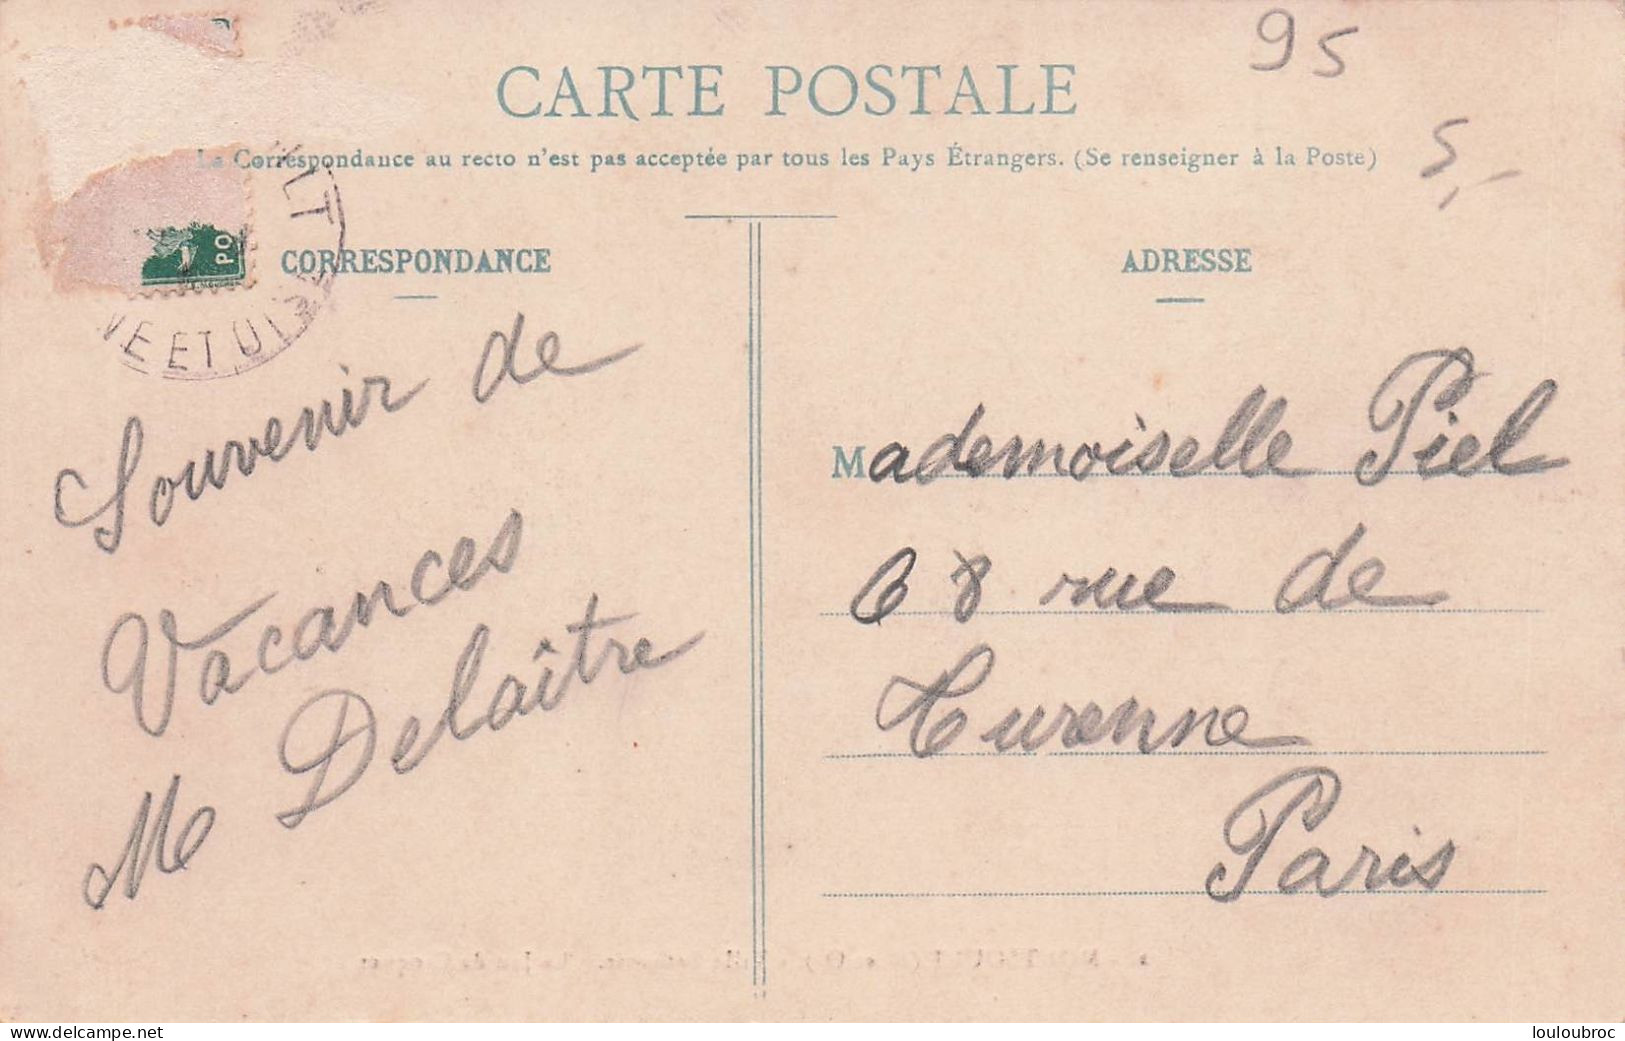 95
CARTE POSTALE
La Correspondance au recto n'est pas acceptée par tous les Pays Étrangers. (Se renseigner à la Poste)
5,-
PO
NE ET OISE
CORRESPONDANCE
Souvenir de
Vacances
M Delaître
ADRESSE
Mademoiselle Piel
68 rue de
Turenne
Paris
www.delcampe.net
louloubroc